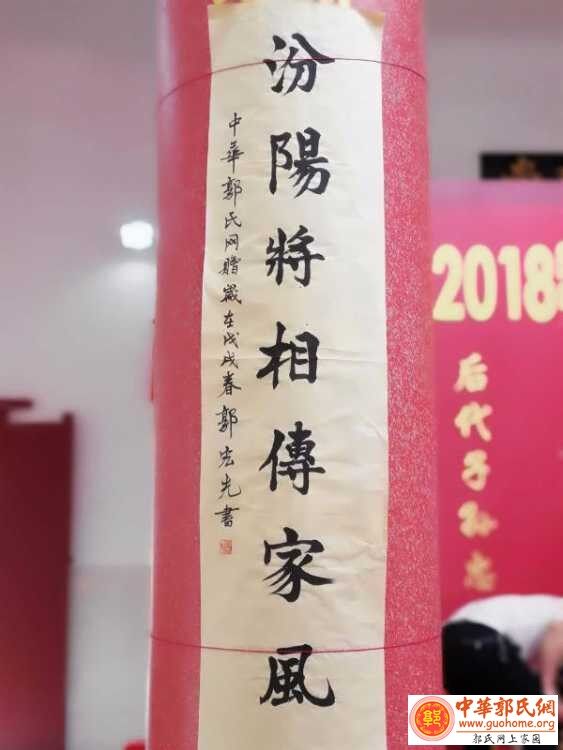 汾陽將相傳家風
中華郭氏网贈歲在戊戌春郭宏先書
2018
后代子孙忠
中華郭氏網
www.guohome.org
郭氏网上家园